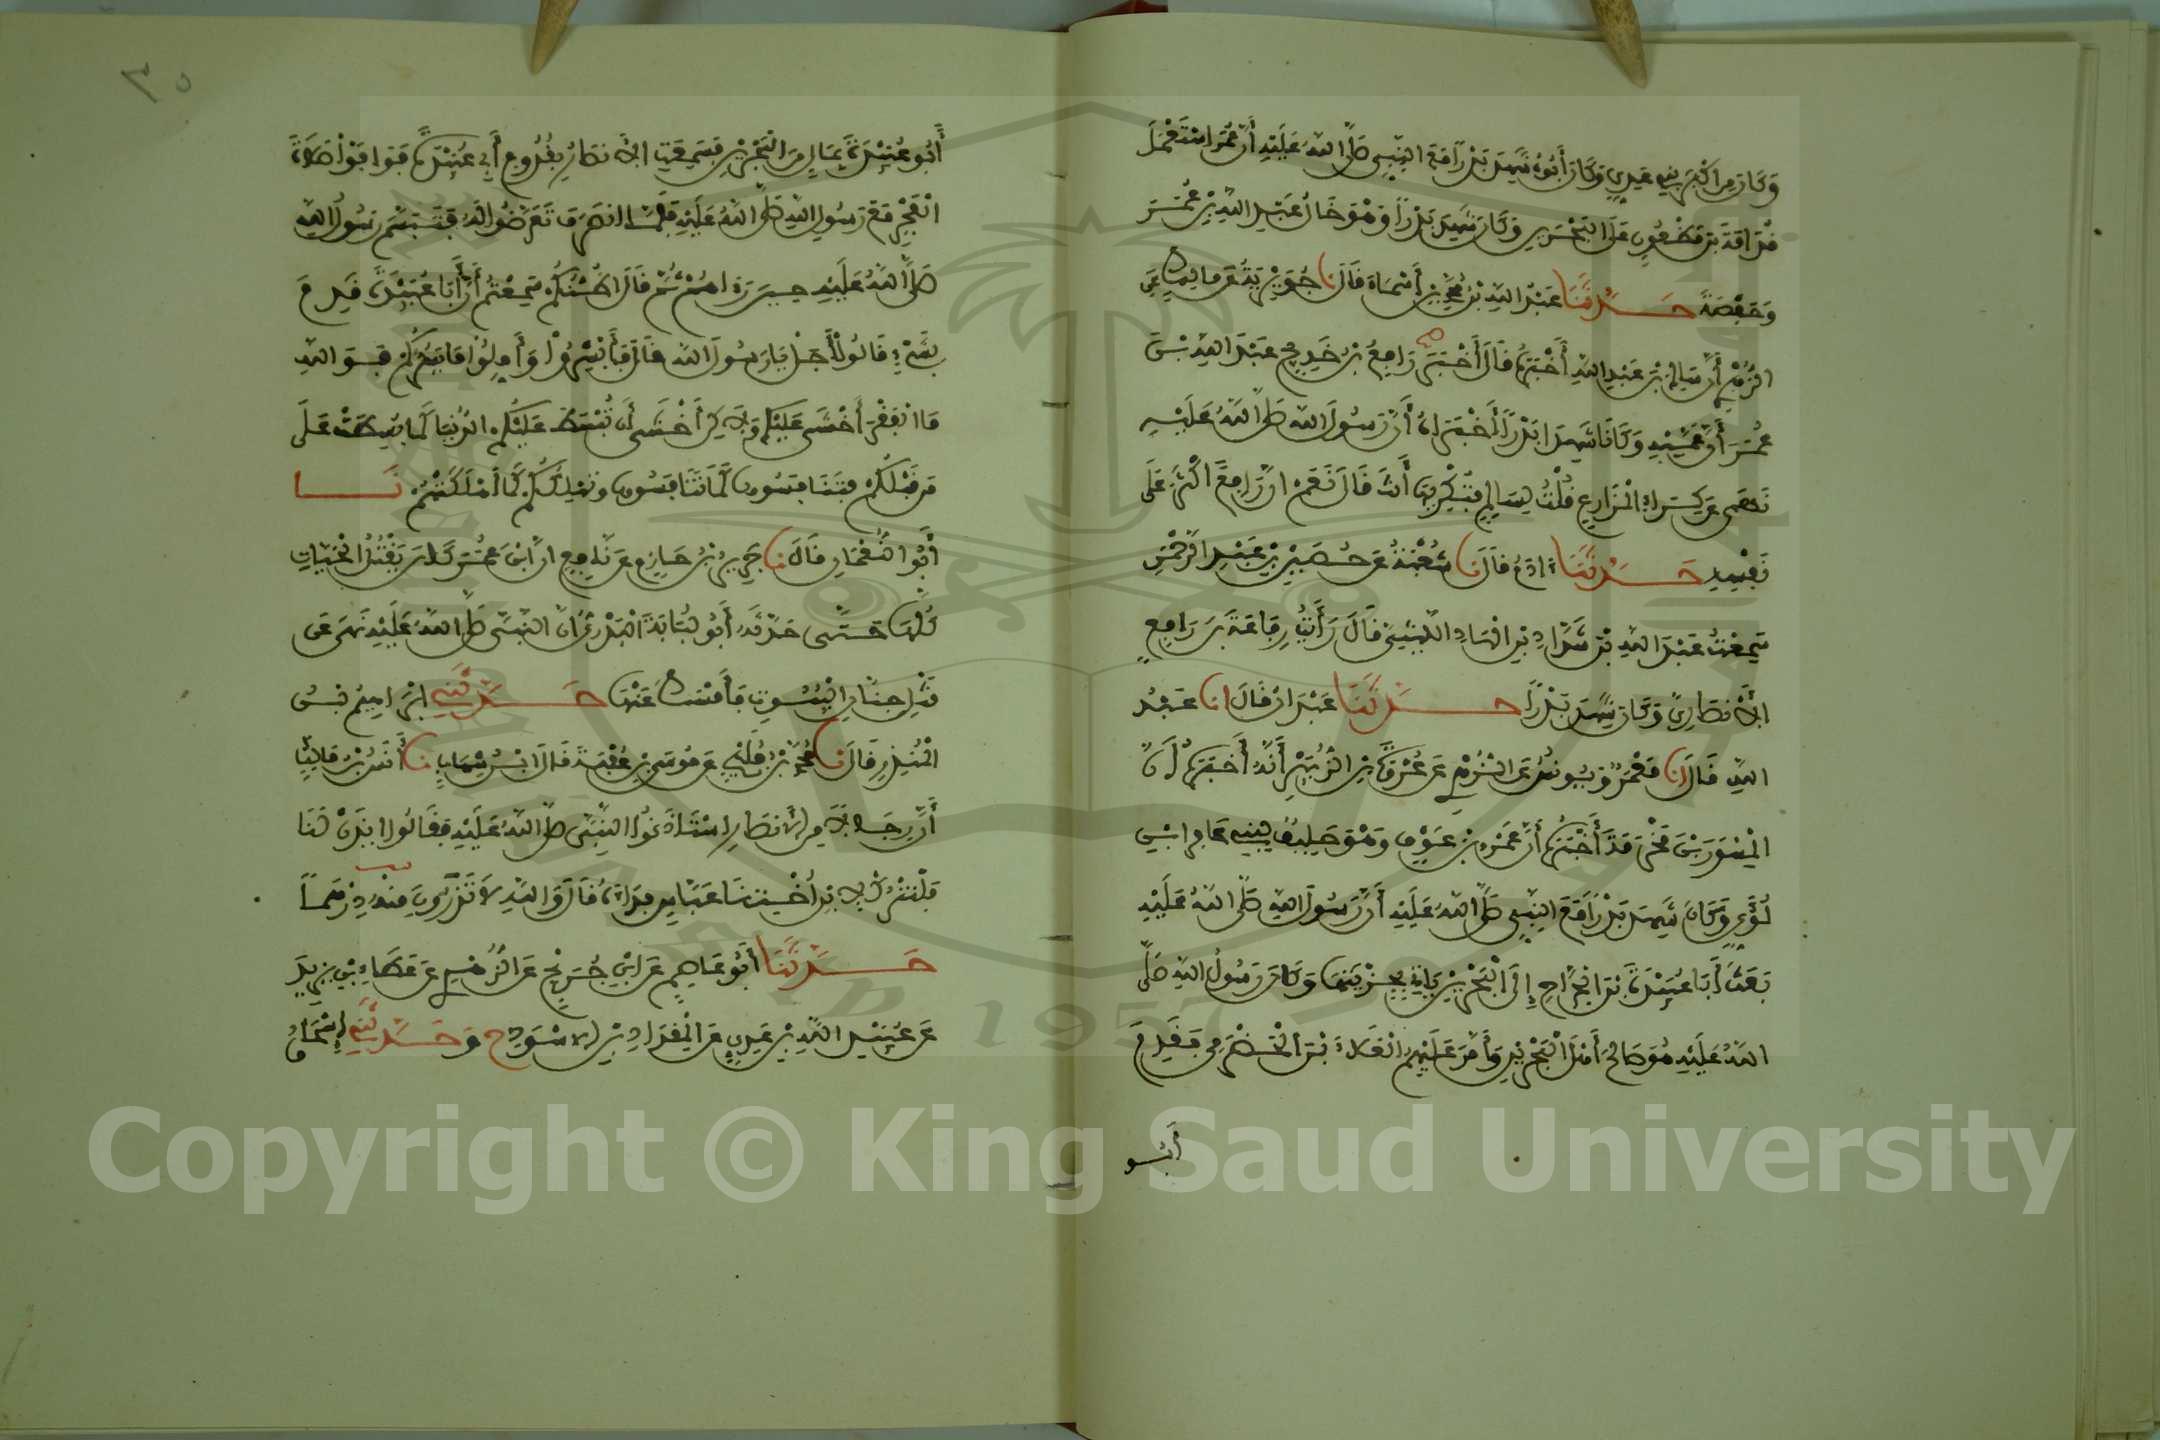 وكان من اكبر بني عدي وكان أبوه شهد بدرا مع النبي صلى الله عليه أن عمر استعمل
قدامة بن مظعون على البحرين وكان شهد بدرا وهو خال عبد الله بن عمر
وحفصة حدثنا عبد الله بن محمد بن أسماء قال نا جويرية عن مالك عن
الزهري أن سالم بن عبد الله أخبره قال أخبر رافع بن خديج عبد الله بن
عمر أن عميه وكانا شهدا بدرا أخبراه أن رسول الله صلى الله عليه
نهى عن كراء المزارع قلت لسالم فتكريها أنت قال نعم ان رافعا اكثر على
نفسه حدثنا ادم قال نا شعبة عن حصين بن عبد الرحمن
سمعت عبد الله بن شداد بن الهاد الليثي قال رأيت رفاعة بن رافع
الانصاري وكان شهد بدرا حدثنا عبدان قال انا عبد
الله قال انا معمر ويونس عن الزهري عن عروة بن الزبير أنه أخبره أن
المسور بن مخرمة أخبره أن عمرو بن عوف وهو حليف لبني عامر ابن
لؤي وكان شهد بدرا مع النبي صلى الله عليه أن رسول الله صلى الله عليه
بعث أبا عبيدة بن الجراح إلى البحرين يأتي بجزيتها وكان رسول الله صلى
الله عليه هو صالح أهل البحرين وأمر عليهم العلاء بن الحضرمي فقدم
أبو
٣٥
أبو عبيدة بمال من البحرين فسمعت الانصار بقدوم أبي عبيدة فوافوا صلاة
الفجر مع رسول الله صلى الله عليه فلما انصرف تعرضوا له فتبسم رسول الله
صلى الله عليه حين رءاهم ثم قال اظنكم سمعتم أن أبا عبيدة قدم
بشيء قالوا أجل يا رسول الله قال فأبشروا وأملوا ما يسركم فوالله
ما الفقر أخشى عليكم ولاكن أخشى أن تبسط عليكم الدنيا كما بسطت على
من قبلكم فتنافسوها كما تنافسوها وتهلككم كما أهلكتهم نا
أبو النعمان قال نا جرير بن حازم عن نافع ان ابن عمر كان يقتل الحيات
كلها حتى حدثه أبو لبابة البدري ان النبي صلى الله عليه نهى عن
قتل جنان البيوت فأمسك عنها حدثني ابراهيم بن
المنذر قال نا محمد بن فليح عن موسى بن عقبة قال ابن شهاب نا أنس بن مالك
أن رجالا من الانصار استأذنوا النبي صلى الله عليه فقالوا ايذن لنا
فلنترك لابن أختنا عباس فداءه قال والله لا تذرون منه درهما
حدثنا أبو عاصم عن ابن جريج عن الزهري عن عطاء بن يزيد
عن عبيد الله بن عدي عن المقداد بن الاسود ح وحدثني إسحاق
Copyright © King Saud University
1957